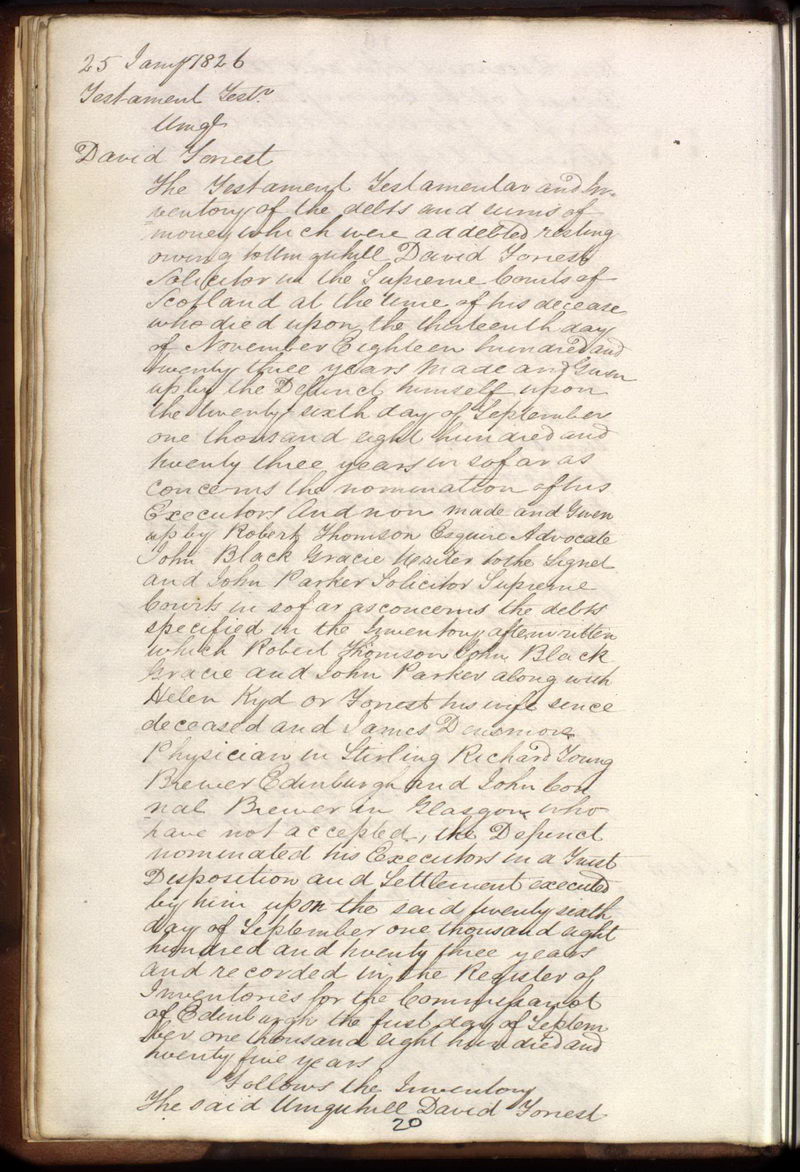 25 Jany 1826
Testament Testr
Umql
David Forrest
The Testament Testamentar and In-
ventory of the debts and sums of
money which were addebted resting
owing to Umquhill David Forrest
Solicitor in the Supreme Courts of
Scotland at the time of his decease
who died upon the thirteenth day
of November Eighteen hundred and
twenty three years Made and Given
up by the Defunct himself upon
the twenty sixth day of September
one thousand eight hundred and
twenty three years in sofar as
concerns the nomination of his
Executors And now made and Given
up by Robert Thomson Esquire Advocate
John Black Gracie Writer to the Signet
and John Parker Solicitor Supreme
Courts in sofar as concerns the debts
specified in the Inventory afterwritten
which Robert Thomson John Black
Gracie and John Parker along with
Helen Kyd or Forrest his wife since
deceased and James Densmore
Physician in Stirling Richard Young
Brewer Edinburgh and John Con
nal Brewer in Glasgow who
have not accepted, the Defunct
nominated his Executors in a Trust
Disposition and Settlement executed
by him upon the said twenty sixth
day of September one thousand eight
hundred and twenty three years
and recorded in the Register of
Inventories for the Commissariot
of Edinburgh the first day of Septem
ber one thousand eight hundred and
twenty five years
Follows the Inventory
The said Umquhill David Forrest
20